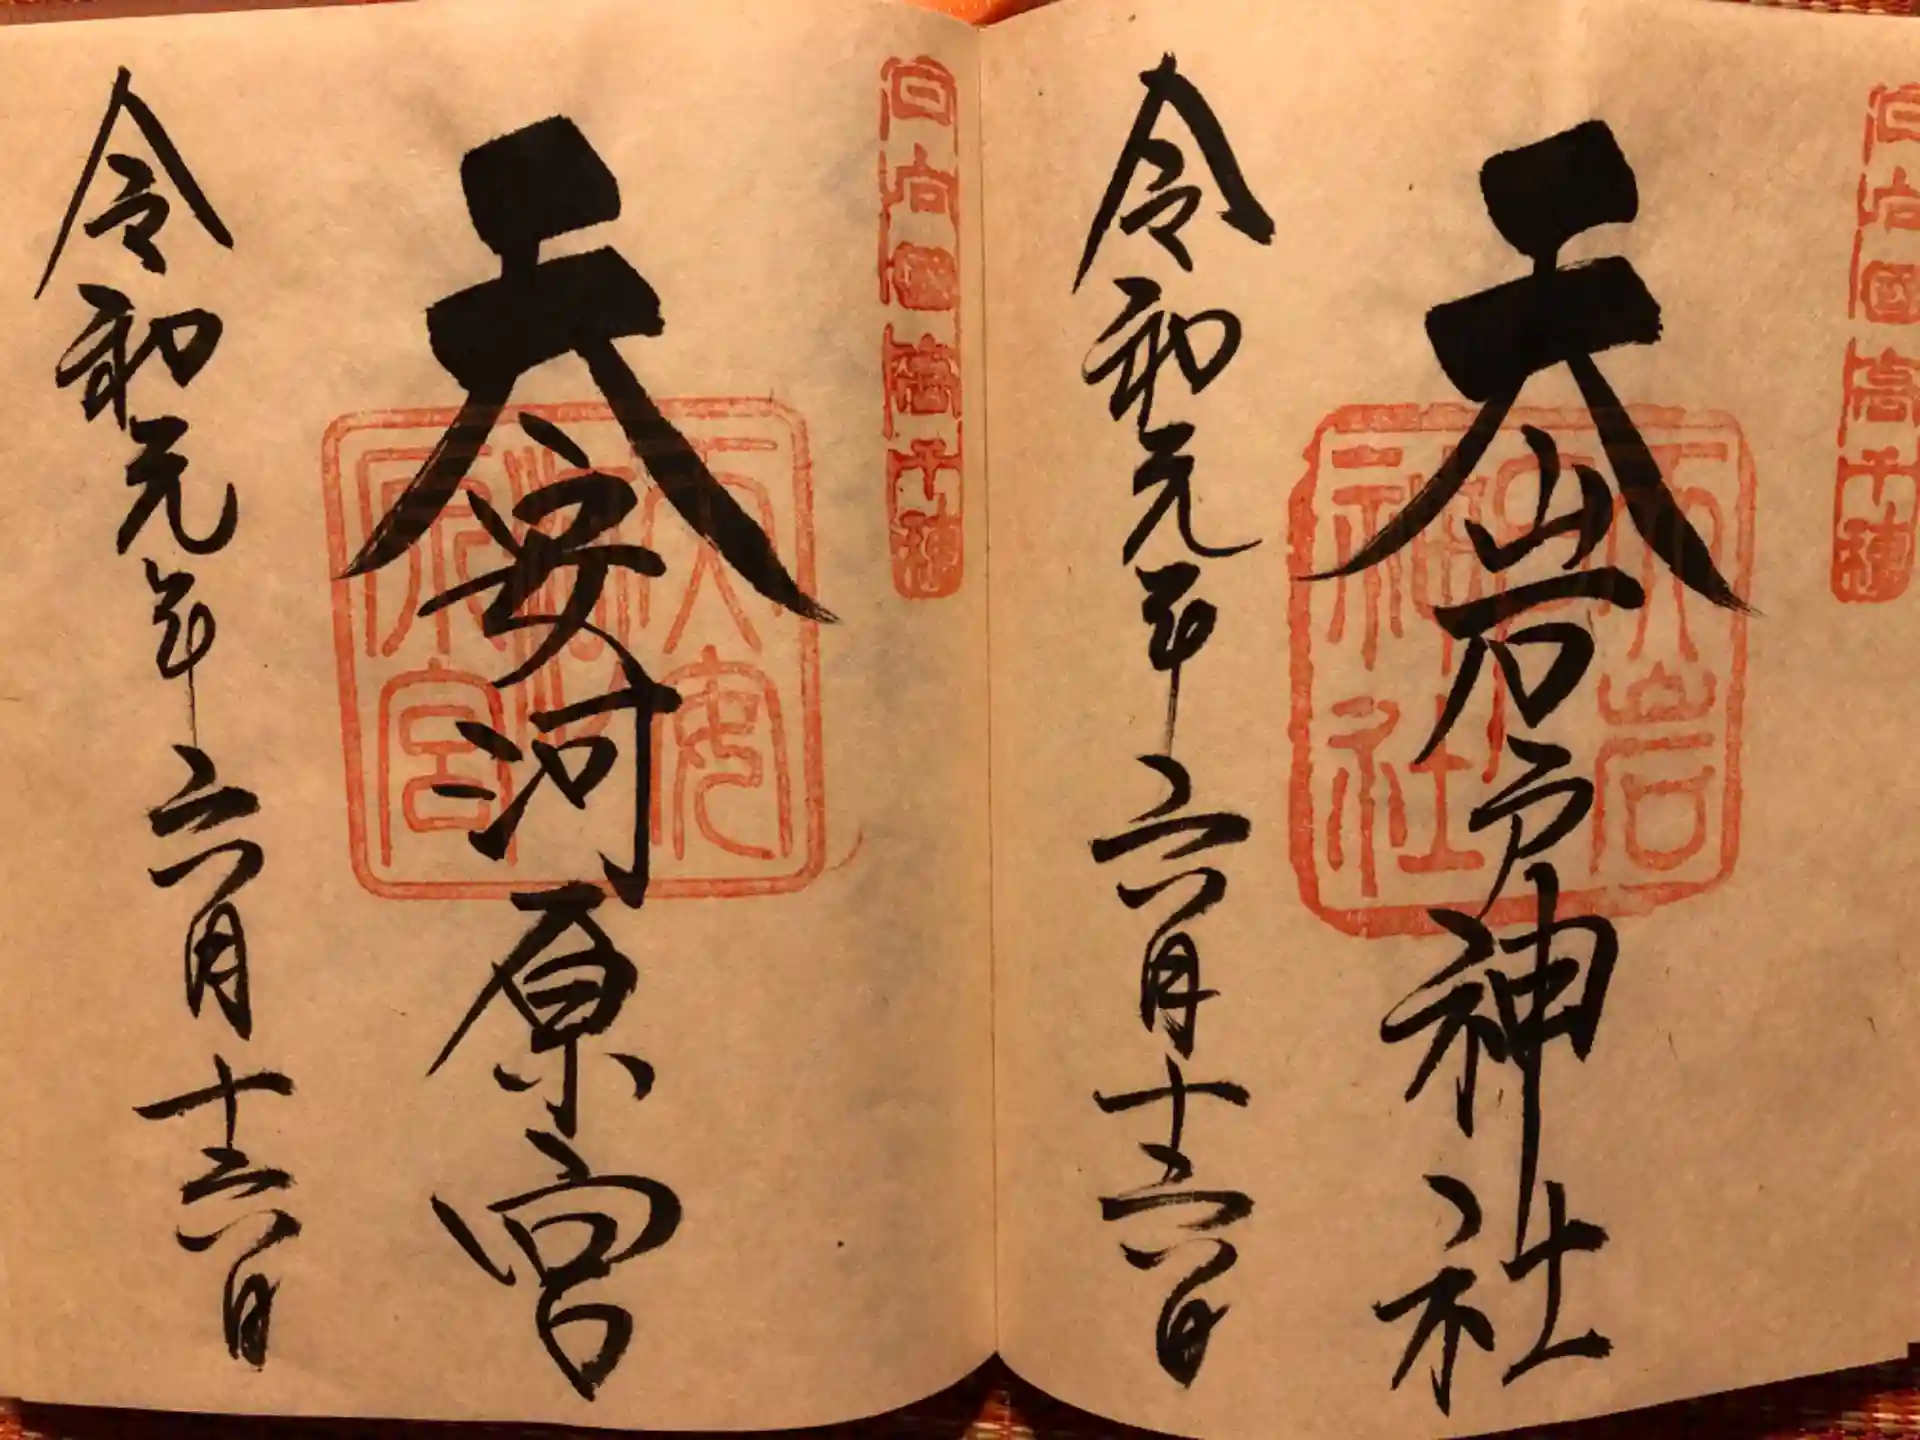 日向國高千穂
天岩戸神社
天岩戸神社
令和元年六月十六日
日向國高千穂
天安河原宮
天安河原宮
令和元年六月十六日